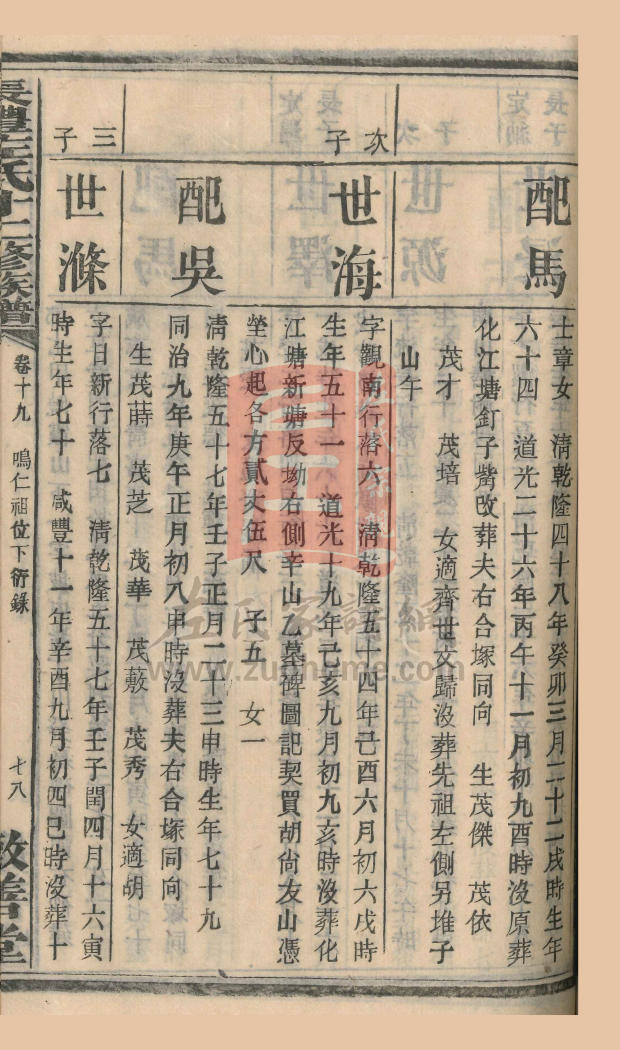 配馬
士章女 淸乾隆四十八年癸卯三月二十二戌時生年
六十四 道光二十六年丙午十一月初九酉時沒原葬
化江塘釘子觜改葬夫右合塚同向 生茂傑 茂依
茂才 茂培 女適齊世文歸沒葬先祖左側另堆子
山午
次子
世海
字觀南行落六 淸乾隆五十四年己酉六月初六戌時
生年五十一 道光十九年己亥九月初九亥時沒葬化
江塘新塘反坳右側辛山乙墓碑圖記契買胡尙友山憑
塋心起各方貳丈伍尺 子五 女一
配吳
淸乾隆五十七年壬子正月二十三申時生年七十九
同治九年庚午正月初八申時沒葬夫右合塚同向
生茂蒔 茂芝 茂華 茂蔜 茂秀 女適胡
三子
世滌
字日新行落七 淸乾隆五十七年壬子閏四月十六寅
時生年七十 咸豐十一年辛酉九月初四巳時沒葬十
長澧左氏十二修族譜
卷十九 鳴仁祖位下衍錄
七八
敦善堂
左氏家譜網
www.zuohome.com